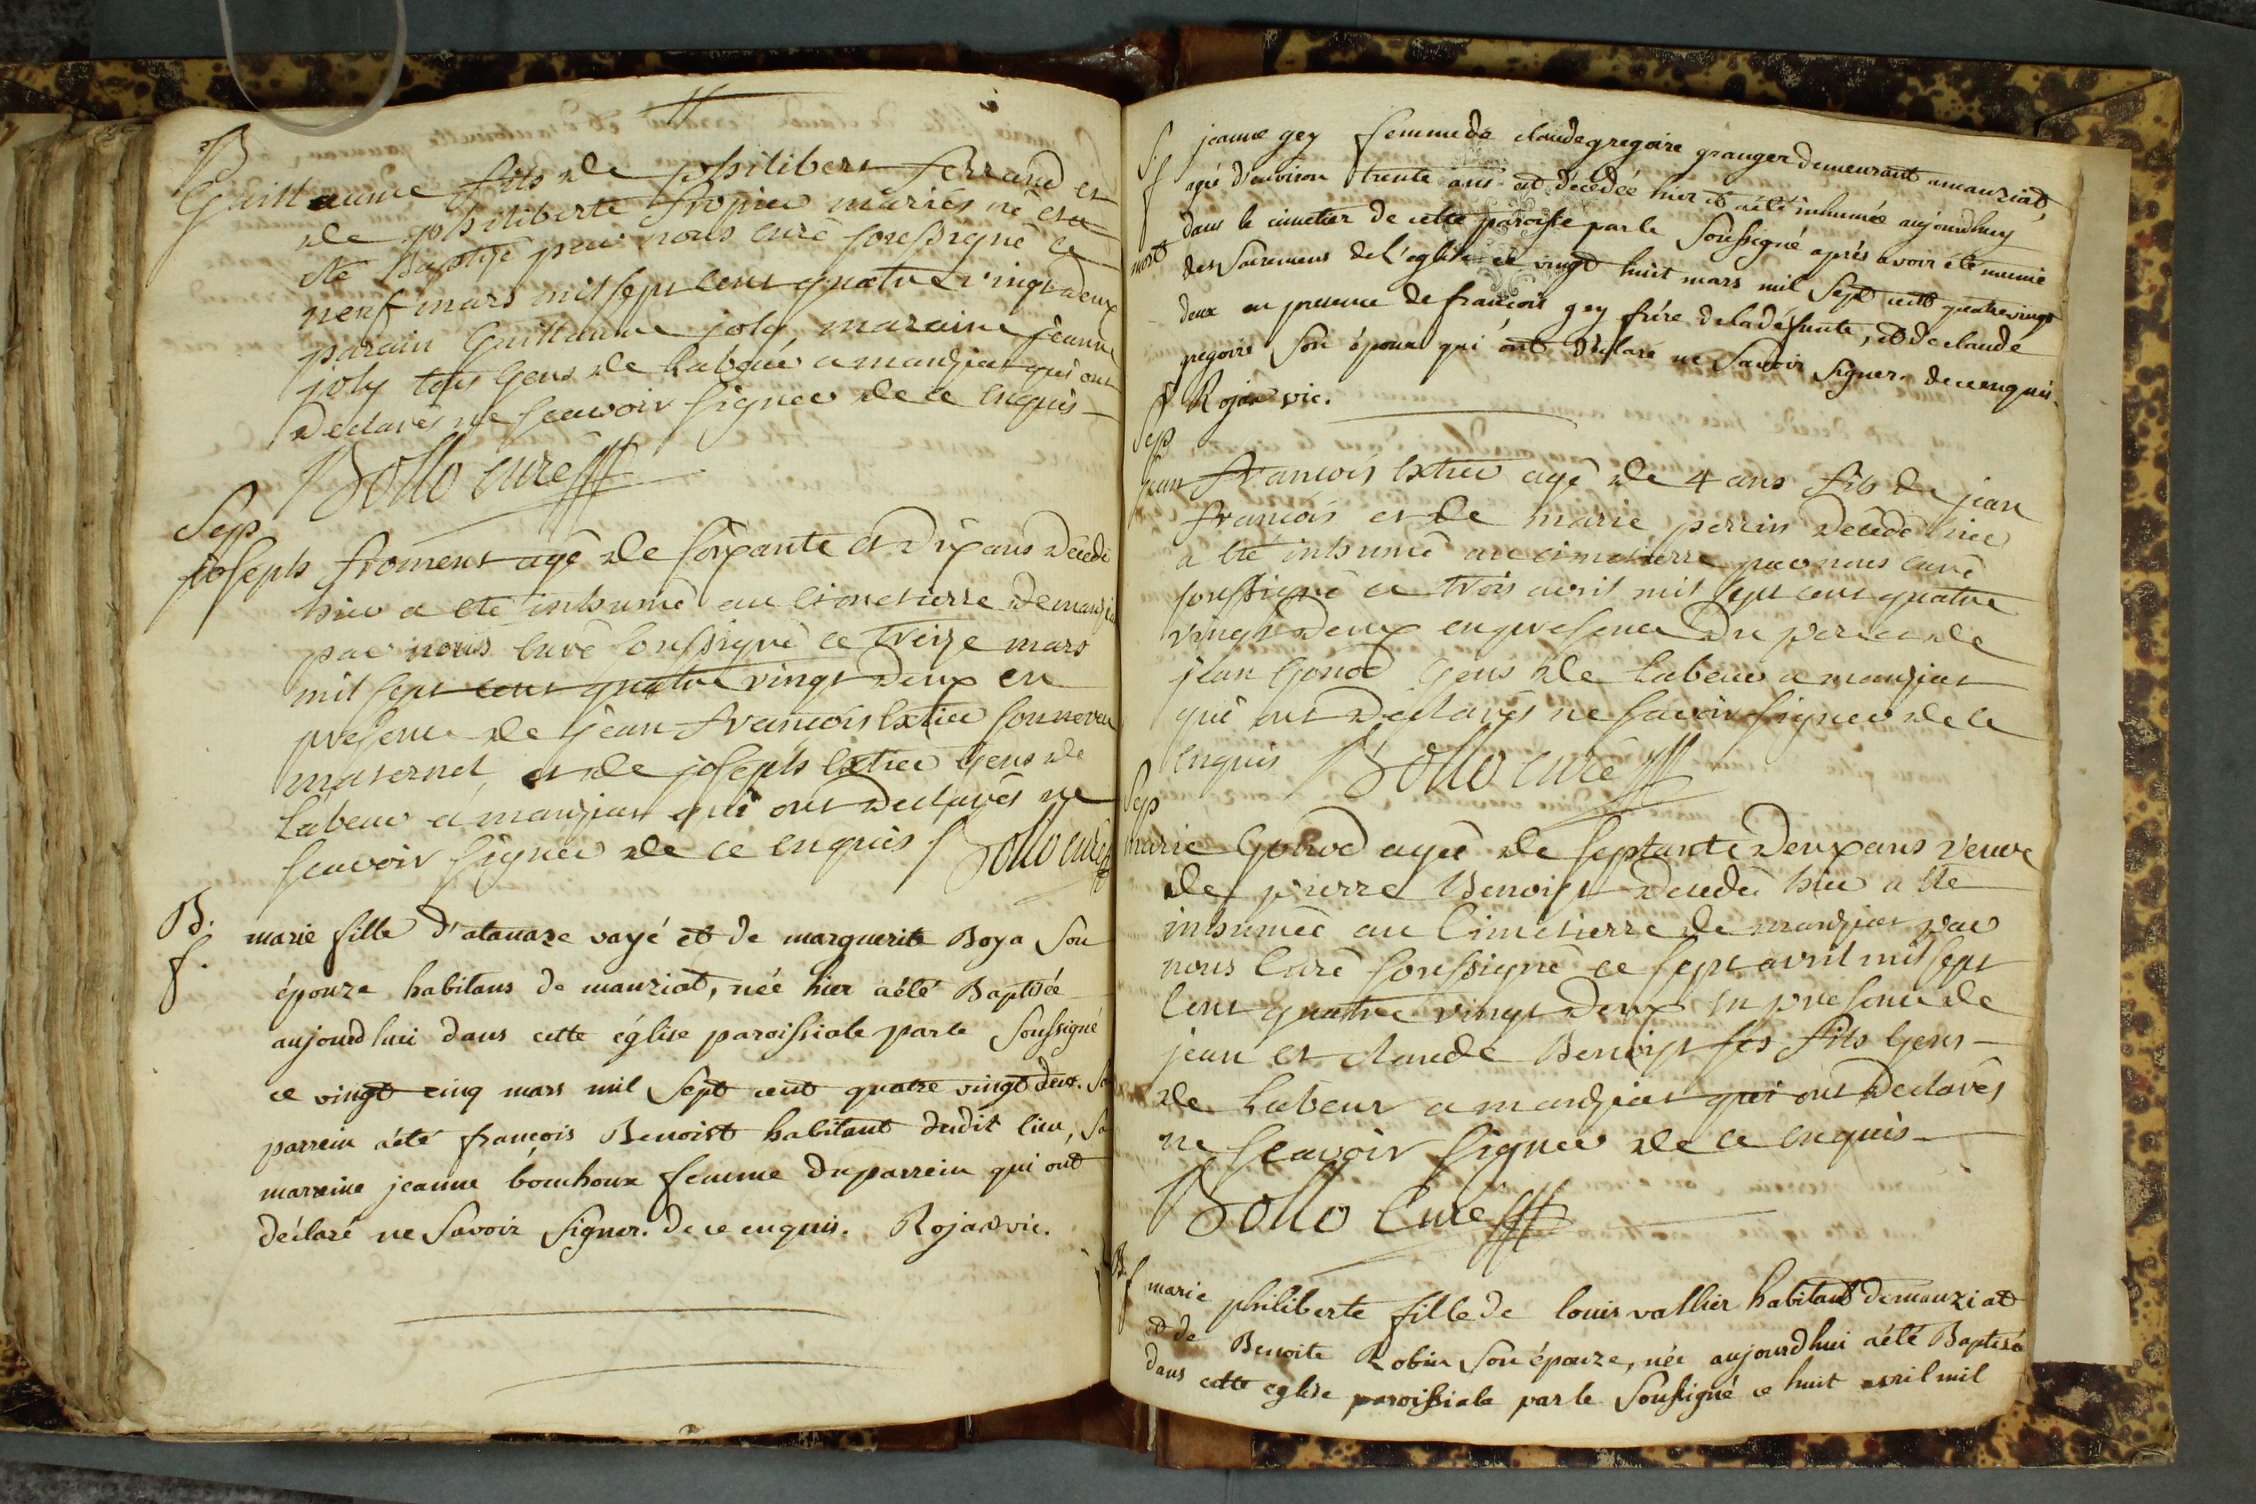 B
Guillaume fils de philibert ferrand et
de philiberte fropier mariés né et a
eté baptisé par nous curé soussigné ce
neuf mars mil sept cent quatre vingt deux
parain Guillaume joly maraine jeanne
joly tous gens de labeur a manziat qui ont
declarés ne scavoir signer de ce enquis
Bollo curé
Sep
joseph froment agé de soixante et dix ans decedé
hier a eté inhumé au cimetierre de manziat
par nous curé soussigné ce treize mars
mil sept cent quatre vingt deux en
presence de jean francois extier son neveu
maternel et de joseph extier gens de
labeur a manziat qui ont declarés ne
scavoir signer de ce enquis Bollo curé
B.
f.
marie fille d'atanaze vayé et de marguerite Boya son
épouze habitans de manziat, née hier a été Baptisée
aujourd hui dans cette église paroissiale par le soussigné
ce vingt cinq mars mil sept cent quatre vingt deux. son
parrein a été françois Benoist habitant dudit lieu, sa
marreine jeanne bouchoux femme du parrein qui ont
déclaré ne savoir signer. de ce enquis. Rojat vic.
S.
f
mort
jeanne gey femme de claude gregoire granger demeurant a manziat,
agée d'environ trente ans est décédée hier et a été inhumée aujourdhuy
dans le cimetier de cette paroisse par le soussigné après avoir été munie
des sacremens de l'eglise ce vingt huit mars mil sept cent quatre vingt
deux en presence de françois gey frére de la défunte, et de claude
gregoire son époux qui ont déclaré ne savoir signer. de ce enquis.
Rojat vic.
Sep
jean francois extier agé de 4 ans fils de jean
francois et de marie perrin decedé hier
a eté inhumé au cimetierre par nous curé
soussigné ce trois avril mil sept cent quatre
vingt deux en presence du pere et de
jean Gonod gens de labeur a manziat
qui ont declarés ne savoir signer de ce
enquis Bollo curé
Sep
marie Gonod agée de septante deux ans veuve
de pierre Benoist decedée hier a eté
inhumée au cimetierre de manziat par
nous curé soussigné ce sept avril mil sept
cent quatre vingt deux en presence de
jean et claude Benoist ses fils gens
de labeur a manziat qui ont declarés
ne scavoir signer de ce enquis
Bollo curé
B.
f
marie philiberte fille de louis vallier habitant de manziat
et de Benoite Robin son épouze, née aujourdhui a été Baptisée
dans cette eglise paroissiale par le soussigné ce huit avril mil